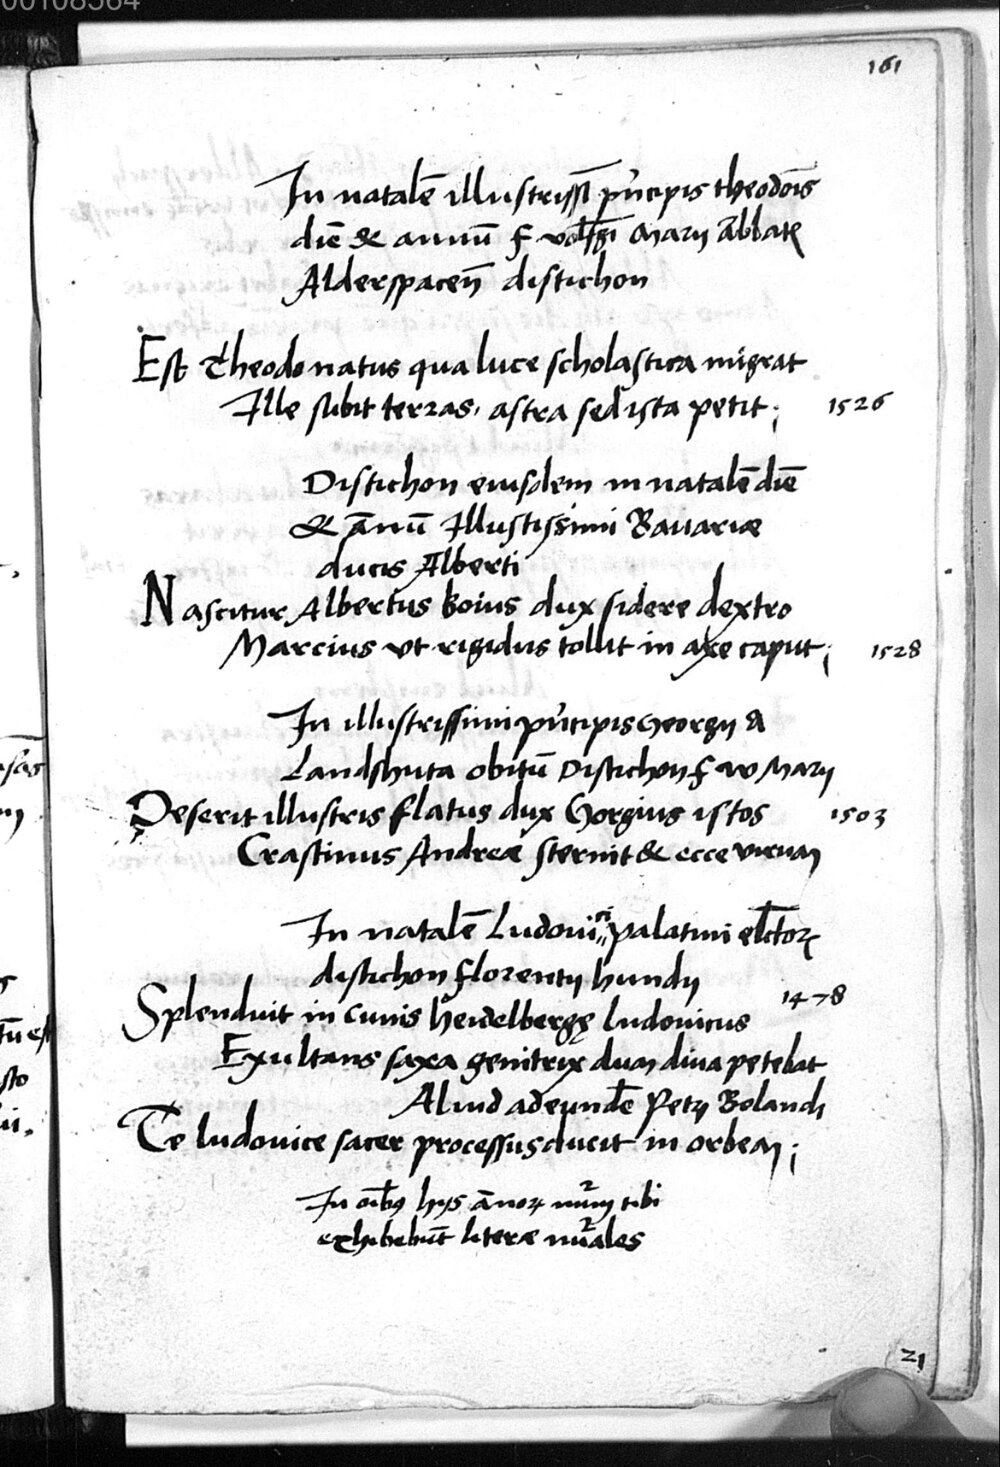 00108564
161
In natalē illustrissī prīcipis theodoīs
diē & annū F volfgi Marij Abbatꝭ
Alderspaceñ distichon
Est Theodo natus qua luce scholastica migrat
Ille subit terras, astra sed ista petit; 1526
Distichon eiusdem in natalē diē
& ānū Illustissimi Bavariæ
ducis Alberti
Nascitur Albertus boius dux sidere dextro
Marcius vt rigidus tollit in axe caput; 1528
In illustrissimi prīcipis Georgij a
Landshuta obitū Distichon F W Marij
Deserit illustris flatus dux Gorgius istos 1503
Crastinus Andreæ sternit & ecce virum
In natalē Ludovici palatini elctorꝭ
distichon florentij hundij
1478
Splenduit in cunis heidelbergę ludovicus
Exultans saxa genitrix dum diua petebat
Aliud ad eundē Petrj Bolandj
Te ludovice sacer processus ducit in orbem;
In oībꝰ hijs ānoꝝ nūm tibi
exhibebūt literæ nūales
21